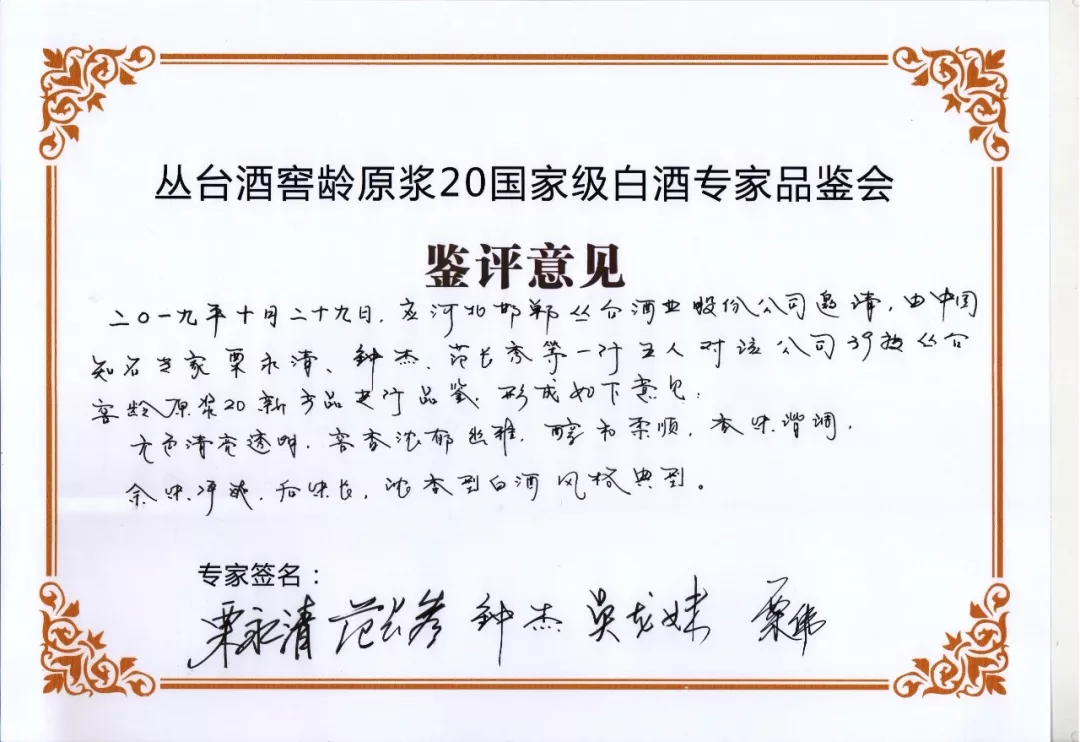 丛台酒窖龄原浆20国家级白酒专家品鉴会
鉴评意见
二〇一九年十月二十九日，应河北邯郸丛台酒业股份公司邀请，由中国
知名专家栗永清、钟杰、范长秀等一行五人对该公司39度丛台
窖龄原浆20新产品进行品鉴，形成如下意见：
无色清亮透明，窖香浓郁幽雅，醇和柔顺，香味谐调，
余味净爽，后味长，浓香型白酒风格典型。
专家签名：
栗永清 范长秀 钟杰 吴龙妹 栗伟